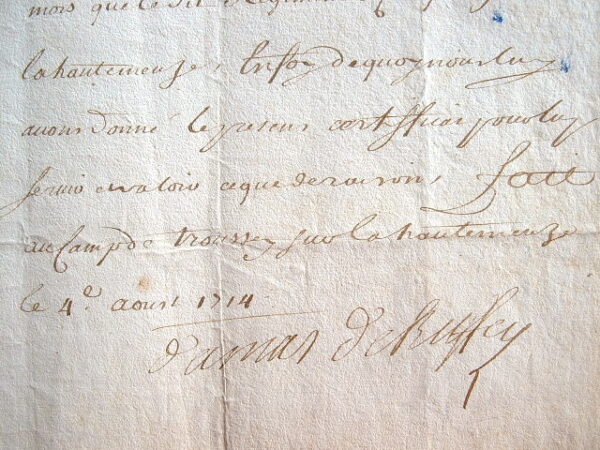 mois que le dit Regiment
la hautemeuse, En foy de quoy nous luy
avons donné le present certifficat pour luy
servir et valoir ce que de raison, fait
au Camp de troussey sur la hautemeuze
le 4.e aoust 1714
Damas De Ruffey